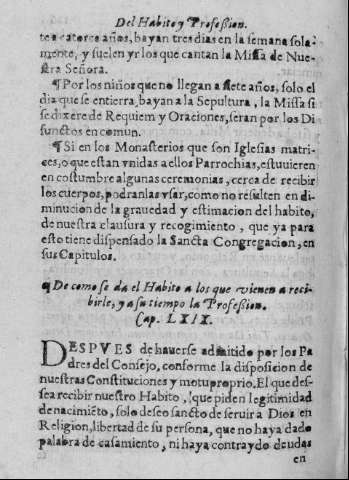 Del Habito y Profession.
te a catorce años, bayan tres dias en la semana sola-
mente, y suelen yr los que cantan la Missa de Nue-
stra Señora.
¶ Por los niños que no llegan a siete años, solo el
dia que se entierra, bayan a la Sepultura, la Missa si
se dixere de Requiem y Oraciones, seran por los Di
functos en comun.
¶ Si en los Monasterios que son Iglesias matri-
ces, o que estan vnidas a ellos Parrochias, estuuieren
en costumbre algunas ceremonias, cerca de recibir
los cuerpos, podranlas vsar, como no resulten en di-
minucion de la grauedad y estimacion del habito,
de nuestra clausura y recogimiento, que ya para
esto tiene dispensado la Sancta Congregacion, en
sus Capitulos.
¶ De como se da el Habito a los que vienen a reci-
birle, y a su tiempo la Profession.
Cap. LXIX.
DESPVES de hauerse admitido por los Pa
dres del Consejo, conforme la disposicion de
nuestras Constituciones y motu proprio, El que des-
sea recibir nuestro Habito, que piden legitimidad
de nacimiẽto, solo deseo sancto de seruir a Dios en
Religion, libertad de su persona, que no haya dado
palabra de casamiento, ni haya contraydo deudas
en